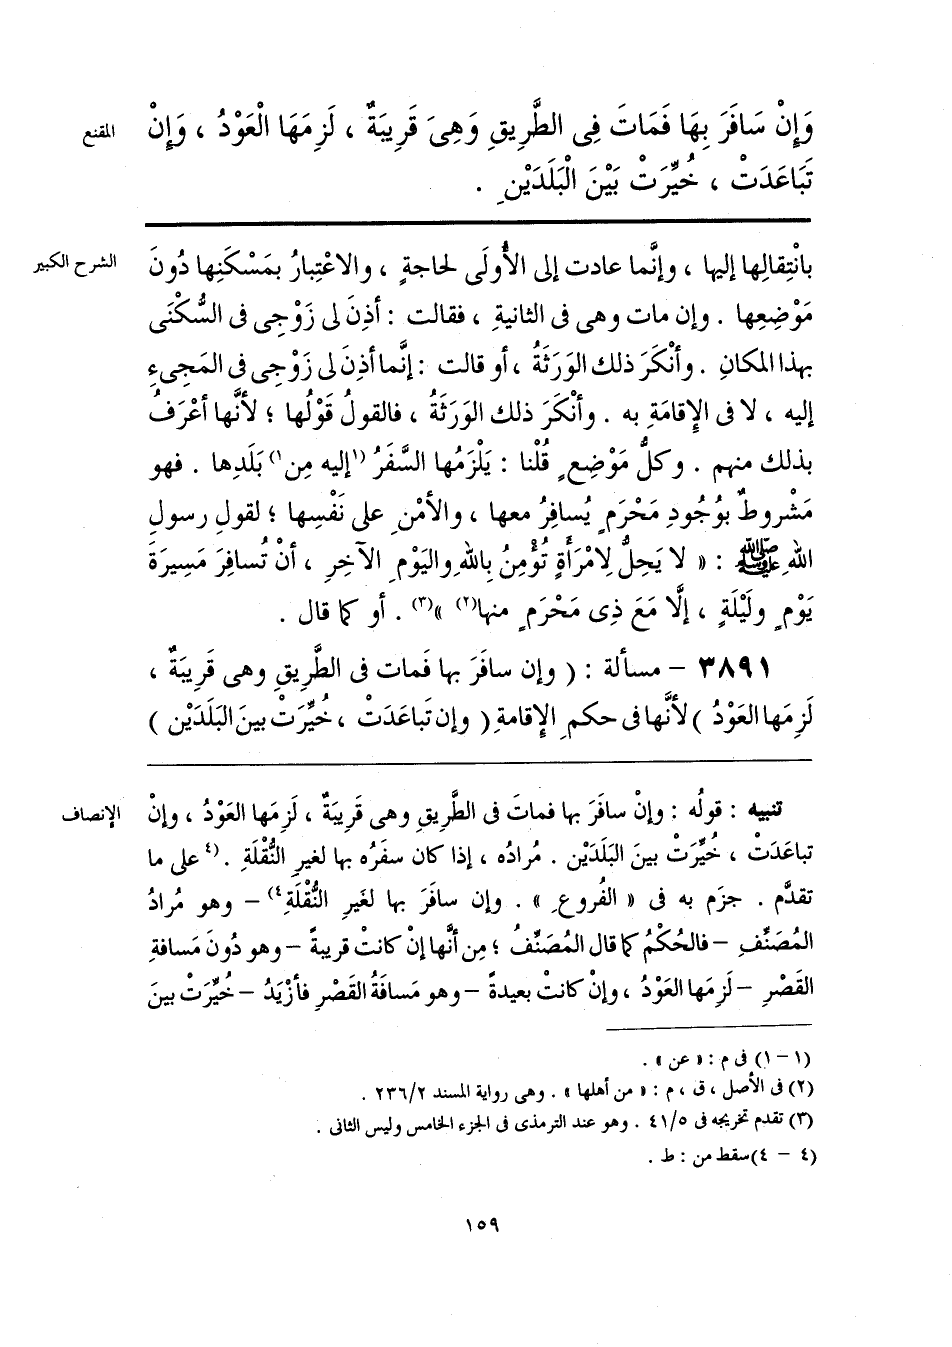 المقنع
وَإِنْ سَافَرَ بِهَا فَمَاتَ فِى الطَّرِيقِ وَهِىَ قَرِيبَةٌ ، لَزِمَهَا الْعَوْدُ ، وَإِنْ
تَبَاعَدَتْ ، خُيِّرَتْ بَيْنَ الْبَلَدَيْنِ .
الشرح الكبير
بانْتِقالِها إليها ، وإنَّما عادت إلى الأُولَى لحاجةٍ ، والاعْتِبارُ بمَسْكَنِها دُونَ
مَوْضِعِها . وإن مات وهى فى الثانيةِ ، فقالت : أذِنَ لى زَوْجِى فى السُّكْنَى
بهذا المكانِ . وأنْكَرَ ذلك الوَرَثَةُ ، أو قالت : إنَّما أذِنَ لى زَوْجِى فى المَجِىءِ
إليه ، لا فى الإِقامَةِ به . وأنْكَرَ ذلك الوَرَثَةُ ، فالقولُ قَوْلُها ؛ لأنَّها أعْرَفُ
بذلك منهم . وكلُّ مَوْضِعٍ قُلْنا : يَلْزَمُها السَّفَرُ (١إليه مِن١) بَلَدِها . فهو
مَشْروطٌ بوُجُودِ مَحْرَمٍ يُسافِرُ معها ، والأمْنِ على نَفْسِها ؛ لقولِ رسولِ
اللهِ ﷺ : « لا يَحِلُّ لِامْرَأَةٍ تُؤْمِنُ باللهِ واليَوْمِ الآخِرِ ، أنْ تُسافِرَ مَسِيرَةَ
يَوْمٍ ولَيْلَةٍ ، إلَّا مَعَ ذِى مَحْرَمٍ منها(٢) »(٣) . أو كما قال .
٣٨٩١ – مسألة : ( وإن سافَرَ بها فَمات فى الطَّرِيقِ وهى قَرِيبَةٌ ،
لَزِمَها العَوْدُ ) لأنَّها فى حكمِ الإِقامةِ ( وإن تَباعَدَتْ ، خُيِّرَتْ بينَ البَلَدَيْن )
الإنصاف
تنبيه : قولُه : وإنْ سافَرَ بها فماتَ فى الطَّرِيقِ وهى قَرِيبَةٌ ، لَزِمَها العَوْدُ ، وإنْ
تباعَدَتْ ، خُيِّرَتْ بينَ البَلَدَيْن . مُرادُه ، إذا كان سفَرُه بها لغيرِ النُّقْلَةِ . (٤على ما
تقدَّم . جزَم به فى « الفُروعِ » . وإن سافَرَ بها لغَيرِ النُّقْلَةِ٤) – وهو مُرادُ
المُصَنِّفِ – فالحُكْمُ كما قال المُصَنِّفُ ؛ مِن أنَّها إنْ كانتْ قريبةً – وهو دُونَ مَسافةِ
القَصْرِ – لَزِمَها العَوْدُ ، وإنْ كانتْ بعيدةً – وهو مَسافَةُ القَصْرِ فأزْيَدُ – خُيِّرَتْ بينَ
(١ – ١) فى م : « عن » .
(٢) فى الأصل ، ق ، م : « من أهلها » . وهى رواية المسند ٢٣٦/٢ .
(٣) تقدم تخريجه فى ٤١/٥ . وهو عند الترمذى فى الجزء الخامس وليس الثانى .
(٤ – ٤) سقط من : ط .
١٥٩